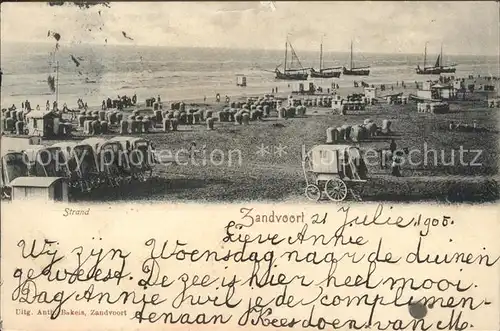 © oldthing.de/schutz
Strand
Zandvoort 21 Julie, 1905.
Lieve Annie
Wij zijn Woensdag naar de duinen
geweest. De zee is hier heel mooi.
Dag Annie wil je de complimen-
tenaan Keesdoen van Mo.
Uitg. Anth. Bakels, Zandvoort